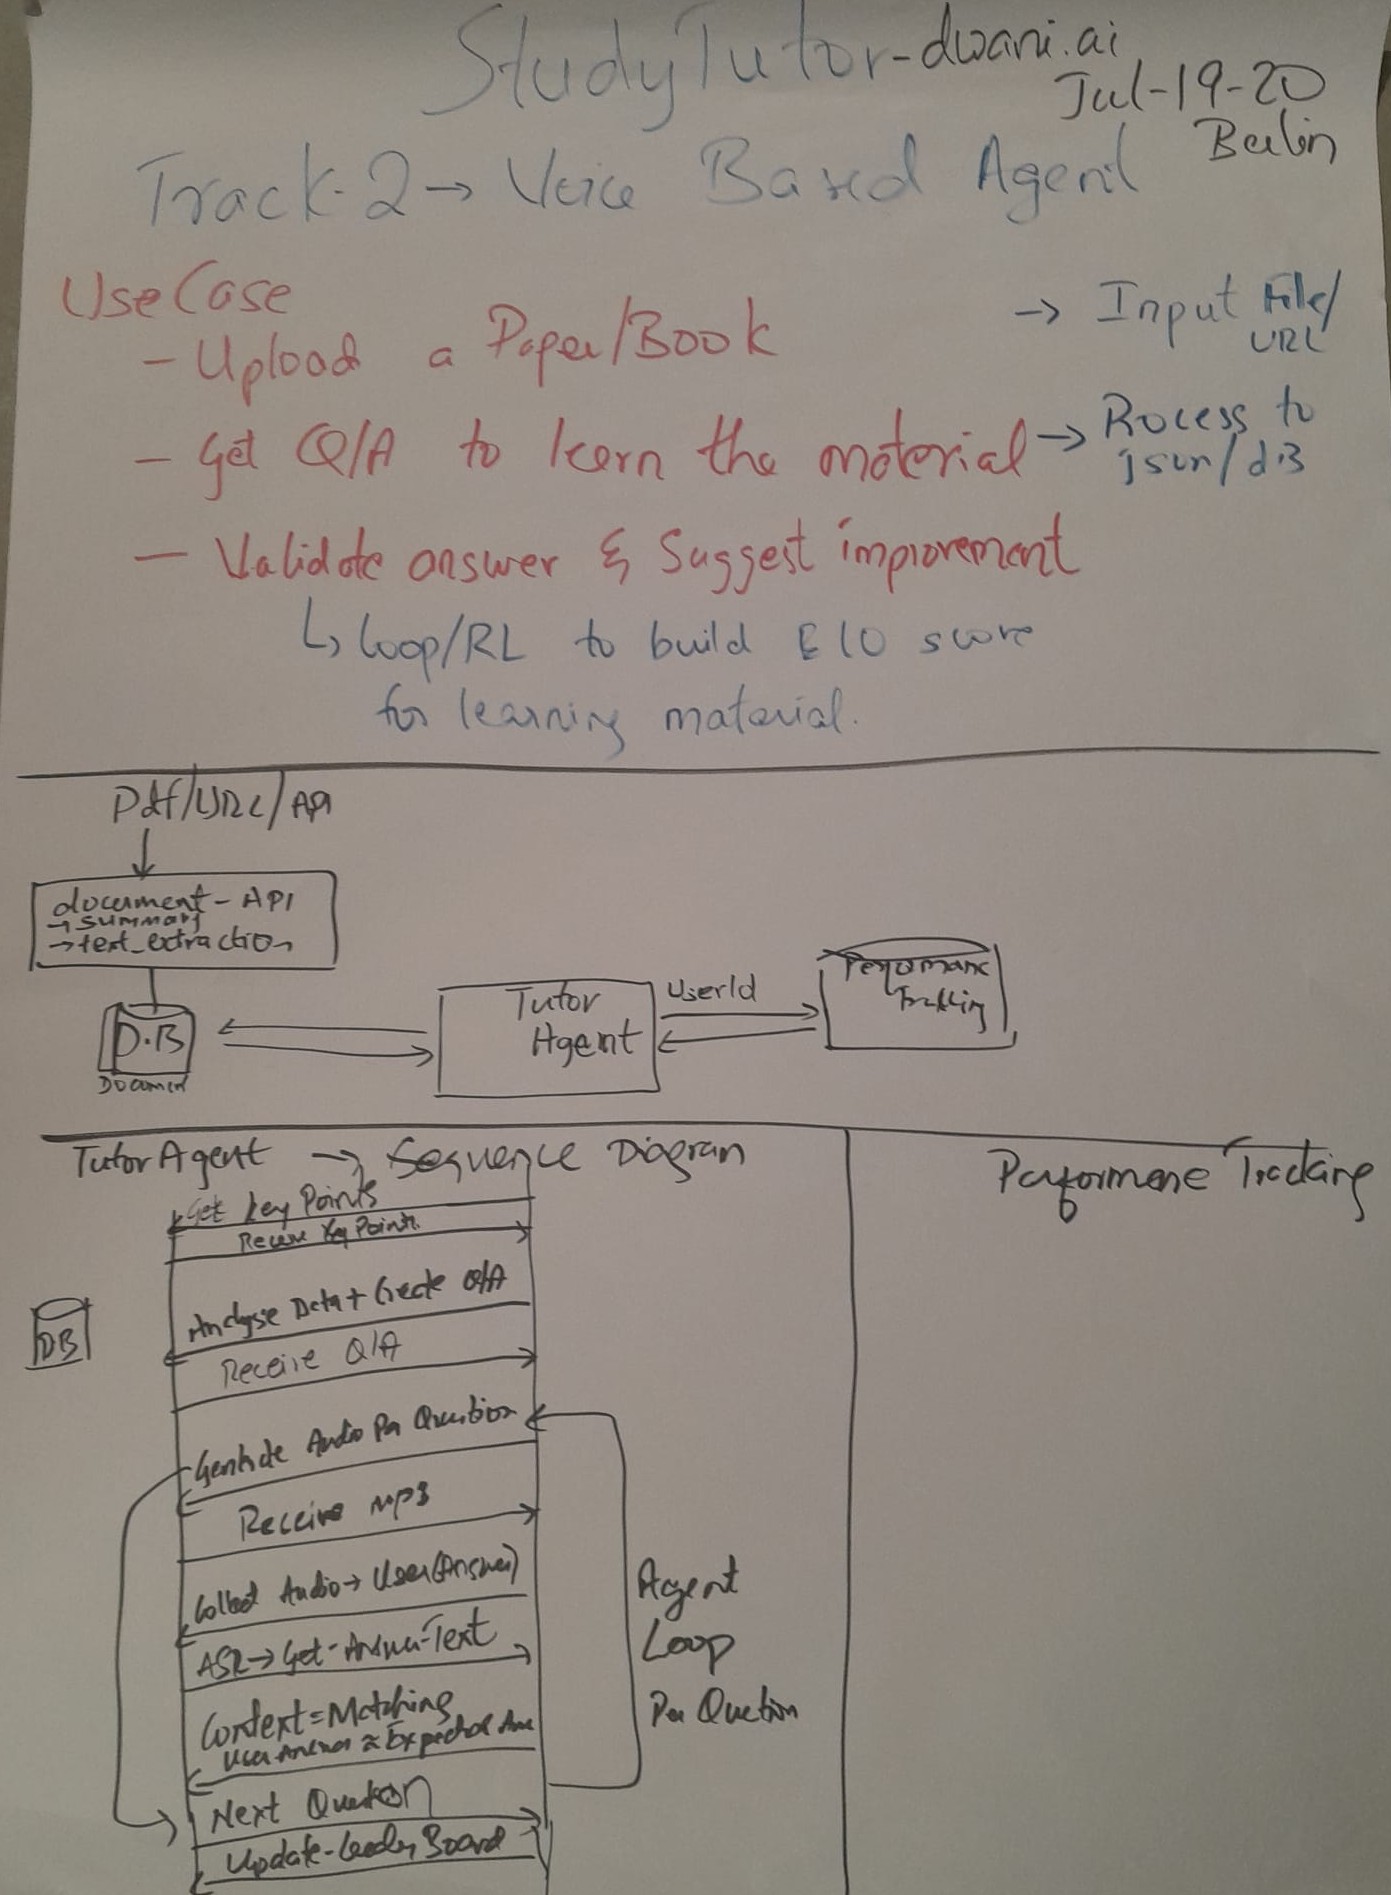 StudyTutor-dwani.ai
Jul-19-20
Berlin
Track-2 → Voice Based Agent
UseCase
- Upload a Paper/Book
→ Input File/
URL
- Get Q/A to learn the material
→ Process to
json/dB
- Validate answer & Suggest improvement
↳ Loop/RL to build ElO score
for learning material.
Pdf/URL/API
document-API
→ summary
→ text_extraction
D.B
Documen
Tutor
Agent
UserId
Performanc
Tracking
TutorAgent → Sequence Diagram
Performene Tracking
Get Key Points
Receive Key Points.
Analyse Data + Create Q/A
DB
Receive Q/A
Generate Audio Per Question
Receive mp3
Collect Audio → User(Answer)
ASR → Get-Answer-Text
Context = Matching
User Answer ≈ Expected Ans
Agent
Loop
Per Quetion
Next Question
Update-Leader Board